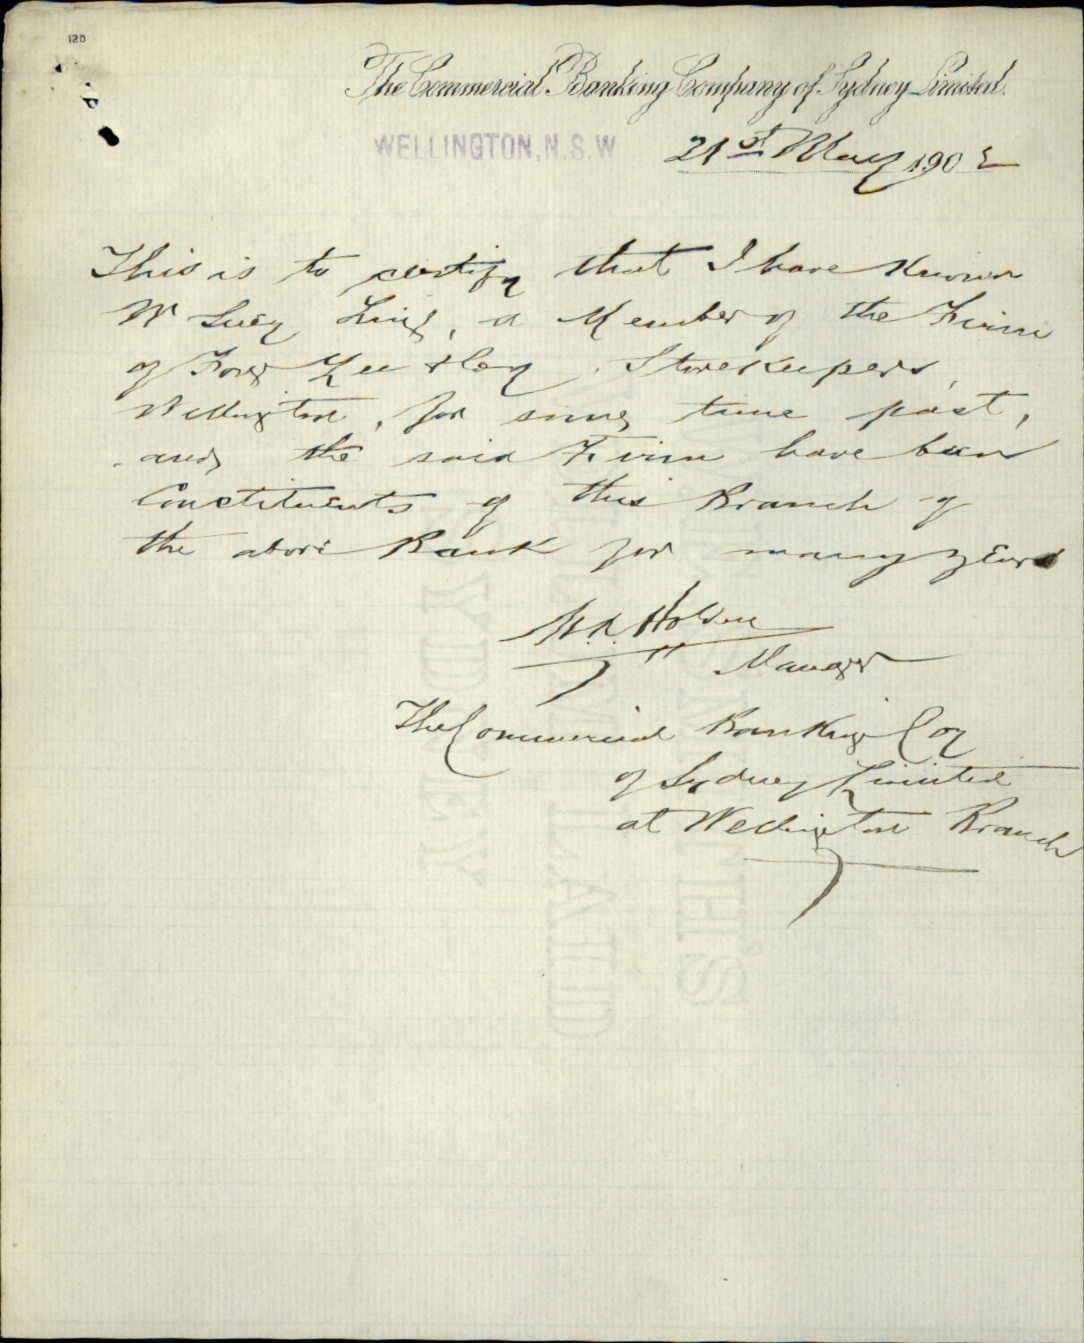 120
The Commercial Banking Company of Sydney Limited.
WELLINGTON, N.S.W
21st May 1902
This is to certify that I have known
W Suey Ling, a Member of the Firm
of Fong Lee & Coy, Storekeepers,
Wellington, for some time past,
and the said Firm have been
Constituents of this Branch of
the above Bank for many years
Holden
Manager
The Commercial Banking Coy
of Sydney Limited
at Wellington Branch
SYDNEY